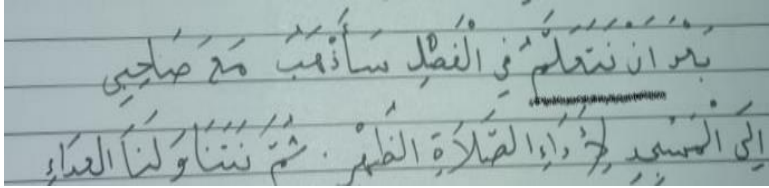 بَعْدَ اَنْ نَتَعَلَّمُ فِي الْفَصْلِ سَأَذْهَبُ مَعَ صَاحِبِي
اِلَى الْمَسْجِدِ لِأَدَاءِ الصَّلَاةِ الظُّهْرِ . ثُمَّ نَتَنَاوَلْنَا الغَدَاءِ